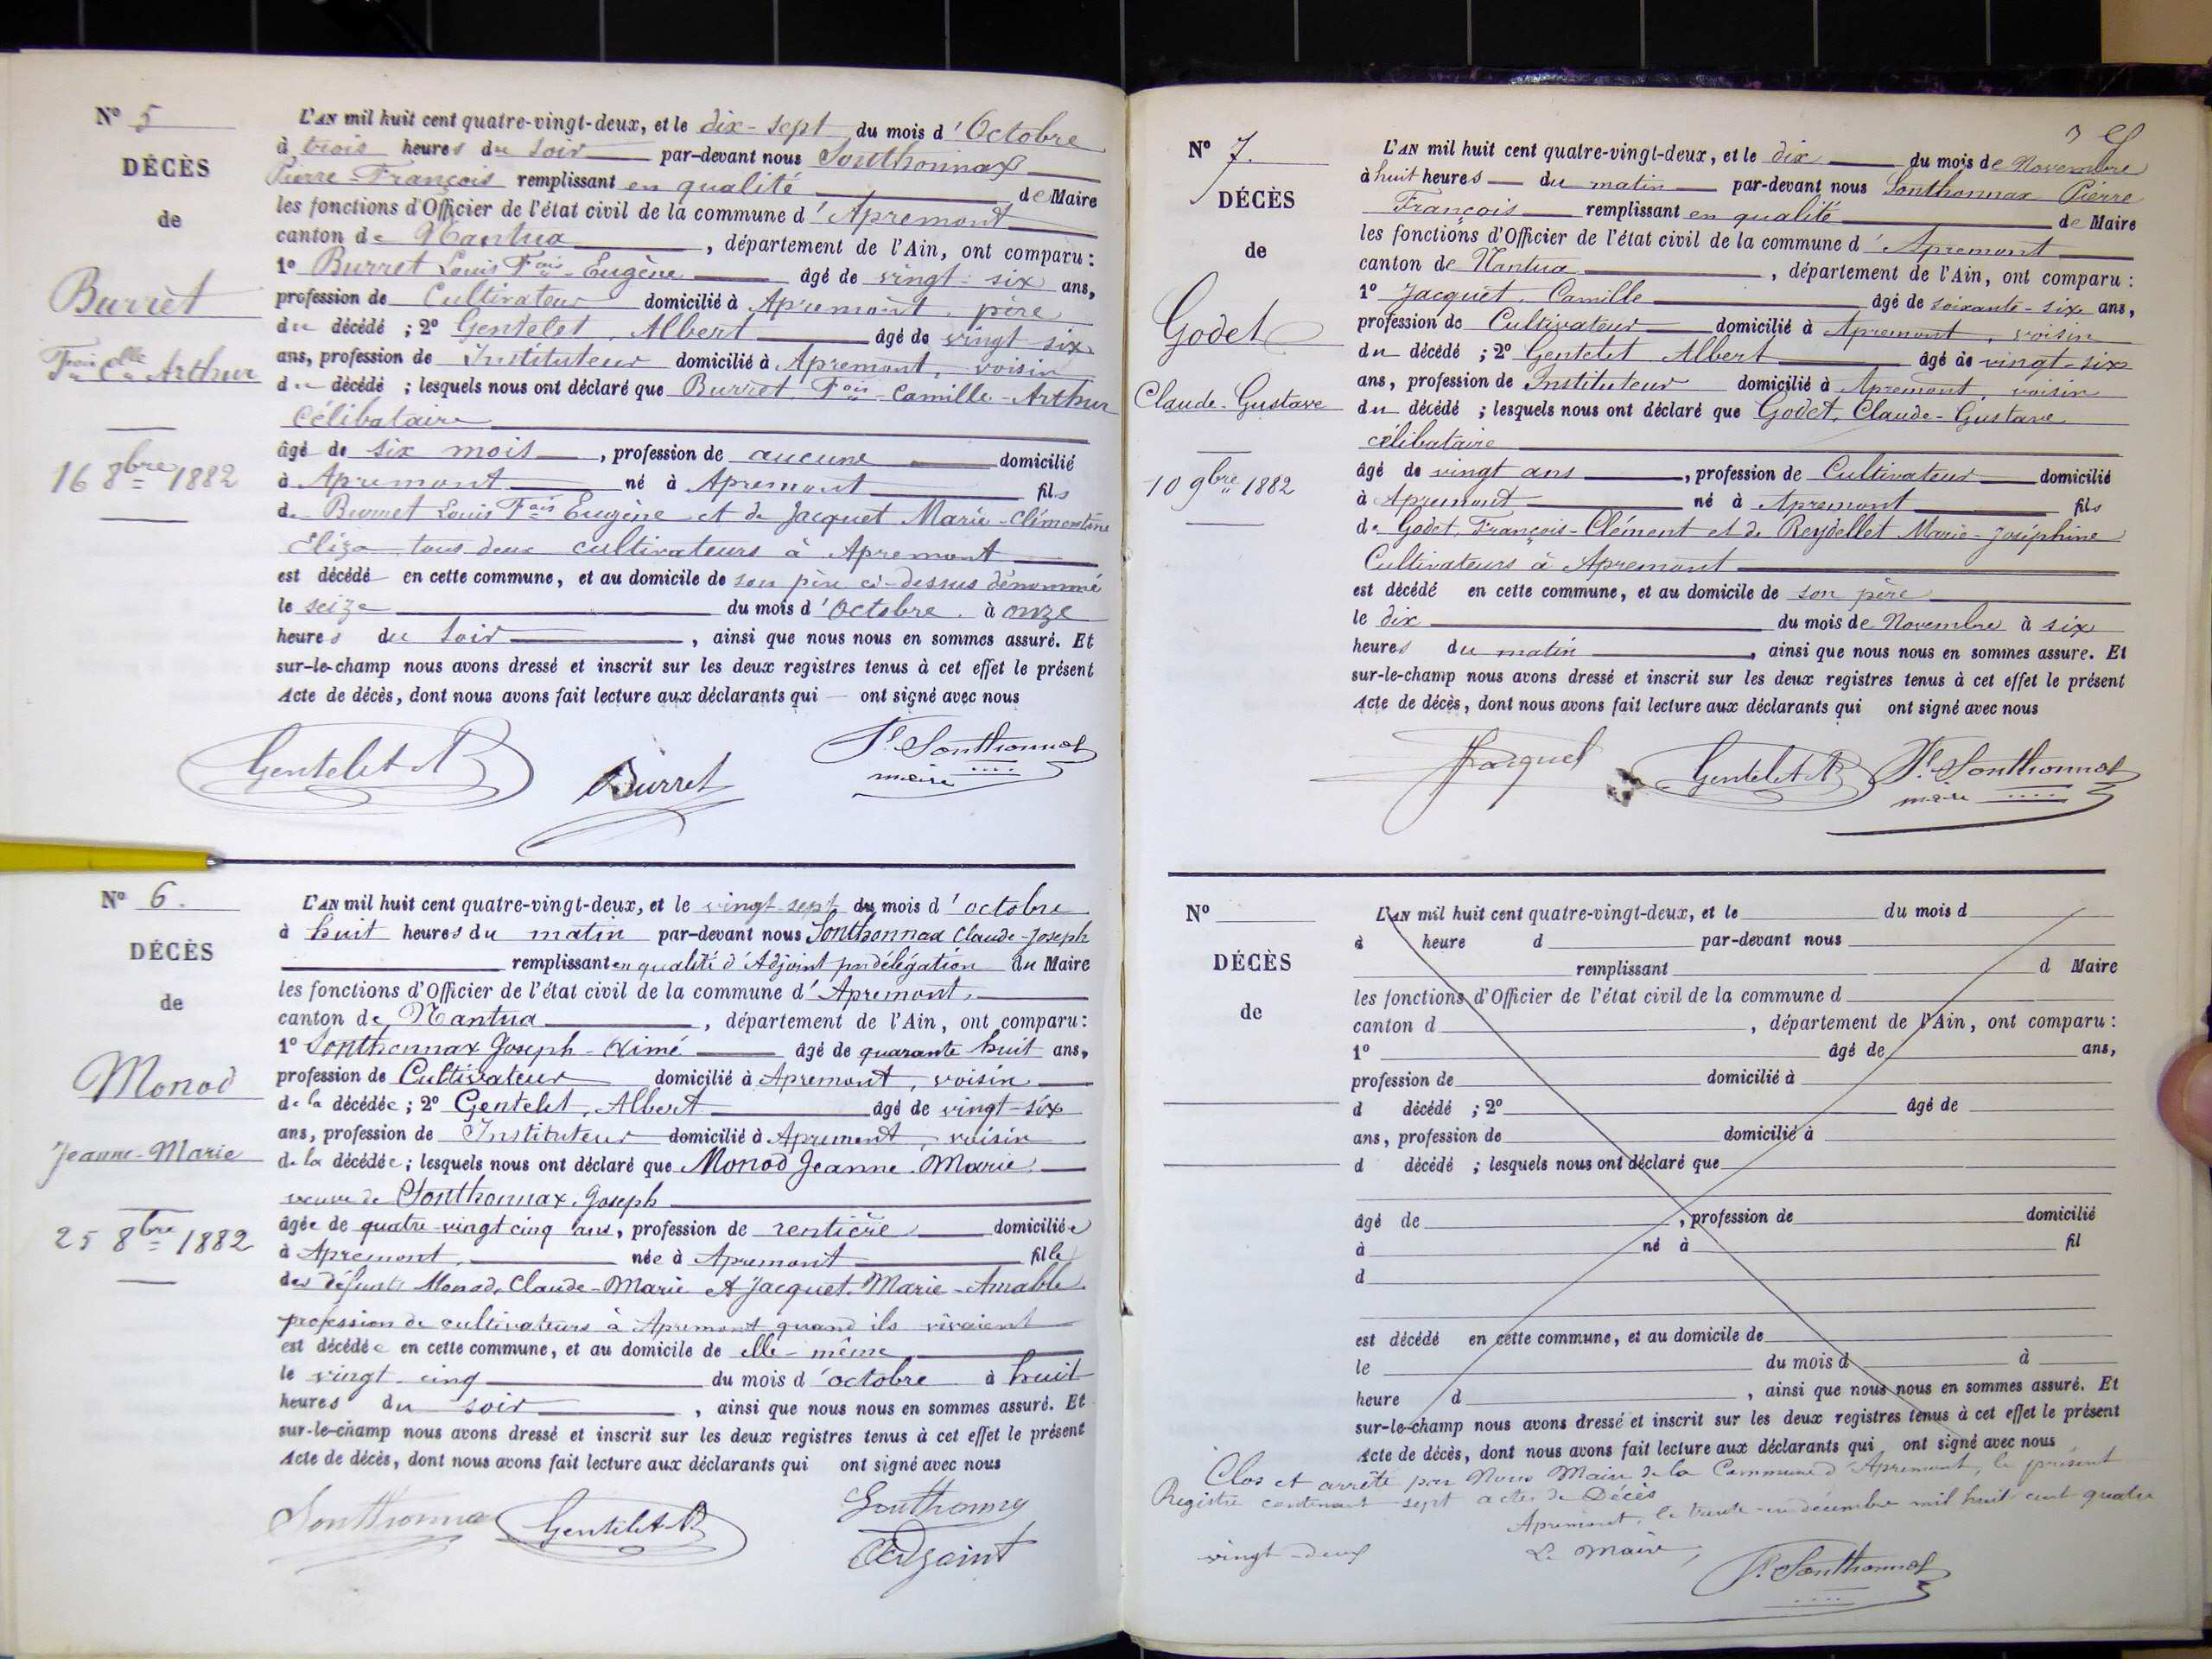 N° 5
DÉCÈS
de
Burret
Fois Clle Arthur
16 8bre 1882
L'AN mil huit cent quatre-vingt-deux, et le dix-sept du mois d'Octobre
à trois heures du soir par-devant nous Sonthonnax
Pierre-François remplissant en qualité de Maire
les fonctions d'Officier de l'état civil de la commune d'Apremont
canton de Nantua, département de l'Ain, ont comparu :
1° Burret Louis Fois Eugène âgé de vingt-six ans,
profession de Cultivateur domicilié à Apremont, père
du décédé ; 2° Gentelet, Albert âgé de vingt-six
ans, profession de Instituteur domicilié à Apremont, voisin
du décédé ; lesquels nous ont déclaré que Burret, Fois-Camille-Arthur
célibataire
âgé de six mois, profession de aucune domicilié
à Apremont né à Apremont fils
de Burret Louis Fois Eugène et de Jacquet Marie-Clémentine
Eliza tous deux cultivateurs à Apremont
est décédé en cette commune, et au domicile de son père ci-dessus dénommé
le seize du mois d'Octobre à onze
heures du soir, ainsi que nous nous en sommes assuré. Et
sur-le-champ nous avons dressé et inscrit sur les deux registres tenus à cet effet le présent
Acte de décès, dont nous avons fait lecture aux déclarants qui — ont signé avec nous
Gentelet A Burret P. Sonthonnax
maire
N° 6.
DÉCÈS
de
Monod
Jeanne-Marie
25 8bre 1882
L'AN mil huit cent quatre-vingt-deux, et le vingt-sept du mois d'octobre
à huit heures du matin par-devant nous Sonthonnax Claude-Joseph
remplissant en qualité d'Adjoint par délégation du Maire
les fonctions d'Officier de l'état civil de la commune d'Apremont,
canton de Nantua, département de l'Ain, ont comparu :
1° Sonthonnax Joseph-Aimé âgé de quarante huit ans,
profession de Cultivateur domicilié à Apremont, voisin
de la décédée ; 2° Gentelet, Albert âgé de vingt-six
ans, profession de Instituteur domicilié à Apremont, voisin
de la décédée ; lesquels nous ont déclaré que Monod Jeanne-Marie
veuve de Sonthonnax, Joseph
âgée de quatre-vingt cinq ans, profession de rentière domiciliée
à Apremont, née à Apremont fille
des défunts Monod, Claude-Marie et Jacquet, Marie-Amable
profession de cultivateurs à Apremont quand ils vivaient
est décédée en cette commune, et au domicile de elle-même
le vingt-cinq du mois d'octobre à huit
heures du soir, ainsi que nous nous en sommes assuré. Et
sur-le-champ nous avons dressé et inscrit sur les deux registres tenus à cet effet le présent
Acte de décès, dont nous avons fait lecture aux déclarants qui ont signé avec nous
Sonthonnax Gentelet A Sonthonnax
Adjoint
N° 7.
DÉCÈS
de
Godet
Claude-Gustave
10 9bre 1882
L'AN mil huit cent quatre-vingt-deux, et le dix du mois de Novembre
à huit heures du matin par-devant nous Sonthonnax Pierre
François remplissant en qualité de Maire
les fonctions d'Officier de l'état civil de la commune d'Apremont
canton de Nantua, département de l'Ain, ont comparu :
1° Jacquet, Camille âgé de soixante-six ans,
profession de Cultivateur domicilié à Apremont, voisin
du décédé ; 2° Gentelet Albert âgé de vingt-six
ans, profession de Instituteur domicilié à Apremont, voisin
du décédé ; lesquels nous ont déclaré que Godet, Claude-Gustave
célibataire
âgé de vingt ans, profession de Cultivateur domicilié
à Apremont né à Apremont fils
de Godet, François-Clément et de Reydellet Marie-Joséphine
Cultivateurs à Apremont
est décédé en cette commune, et au domicile de son père
le dix du mois de Novembre à six
heures du matin, ainsi que nous nous en sommes assuré. Et
sur-le-champ nous avons dressé et inscrit sur les deux registres tenus à cet effet le présent
Acte de décès, dont nous avons fait lecture aux déclarants qui ont signé avec nous
Jacquet Gentelet A P. Sonthonnax
maire
N°
DÉCÈS
de
L'AN mil huit cent quatre-vingt-deux, et le du mois d
à heure d par-devant nous
remplissant d Maire
les fonctions d'Officier de l'état civil de la commune d
canton d, département de l'Ain, ont comparu :
1° âgé de ans,
profession de domicilié à
d décédé ; 2° âgé de
ans, profession de domicilié à
d décédé ; lesquels nous ont déclaré que
âgé de, profession de domicilié
à né à fil
d
est décédé en cette commune, et au domicile de
le du mois d à
heure d, ainsi que nous nous en sommes assuré. Et
sur-le-champ nous avons dressé et inscrit sur les deux registres tenus à cet effet le présent
Acte de décès, dont nous avons fait lecture aux déclarants qui ont signé avec nous
Clos et arrêté par Nous Maire de la Commune d'Apremont, le présent
Registre contenant sept actes de Décès
Apremont, le trente-un décembre mil huit cent quatre
vingt-deux Le Maire,
P. Sonthonnax